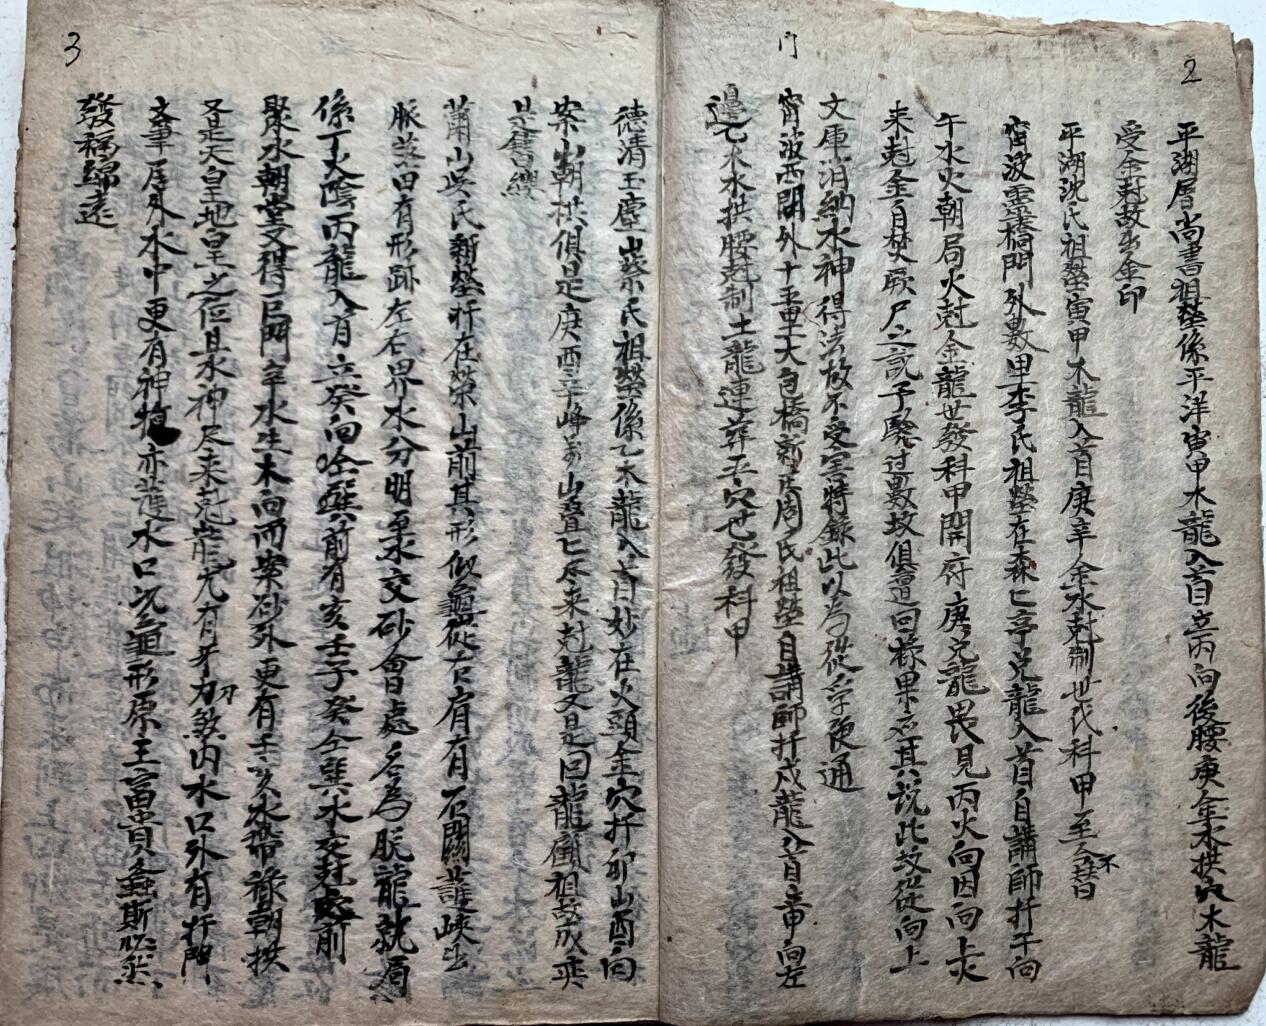 2
平湖屠尚書祖塋係平洋寅甲木龍入首立丙向後腰庚金水拱穴木龍
受金尅故出金印
平湖沈氏祖塋寅甲木龍入首庚辛金水尅制世代科甲至今不替
甯波靈橋門外數里李氏祖塋在森仁亭兌龍入首目講師扦午向
午水火朝局火尅金龍世發科甲開府庚兌龍畏見丙火向因向上火
来尅金自焚厥尸之説予驗过數坟俱遭回祿果应其説此坟從向上
文庫消納水神得法故不受害特錄此以為後学便通
甯波西門外十五里大包橋新庄周氏祖塋目講師扦戌龍入首立申向左
邉乙木水拱腰尅制土龍連葬五穴世發科甲
门
3
德清玉塵山蔡氏祖塋係乙木龍入首妙在火頭金穴扦卯山酉向
案山朝拱俱是庚酉辛峰万山叠叠尽来尅龍又是回龍顧祖故成
是書
蕭山吳氏新塋扦在山前其形似龜從右肩有石關護峽出
脈荒田有形跡左右界水分明至水交砂會處名為脫龍就局
係丁火陰丙龍入首立癸向坐前有亥壬子癸全與水交尅前
聚水朝堂又得巨門辛水生木向而案砂外更有壬亥水帶祿朝拱
又是天皇地皇之位且水神尽来尅龍尤有牙刀煞内水口外有捍門
文筆居外水中更有神物亦護水口况龜形原王富貴螽斯必然
發福綿遠